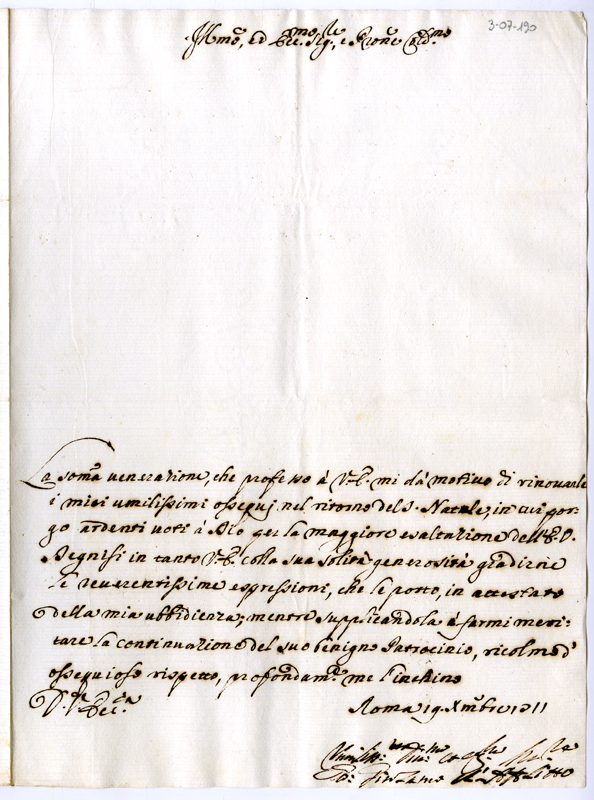 3-07-190
Illmo, ed Ecc.mo Sig.re, e Prone Col.mo
La somã venerazione, che professo à V.E. mi dà motivo di rinouarle
i miei umilissimi ossequj nel ritorno del S. Natale, in cui por-
go ardenti uoti à Dio per la maggiore esaltazione dell'E.V.
Degnisi in tanto V.E. colla sua solita generosità gradirne
le reuerentissime espressioni, che le porto, in attestato
della mia ubbidienza; mentre supplicandola à farmi meri-
tare la continuazione del suo benigno Patrocinio, ricolmo d'
ossequioso rispetto, profondam.te me l'inchino
D. V.ra Ecc.za
Roma 19 Xmbre 1711
Umiliss.mo Diu.mo